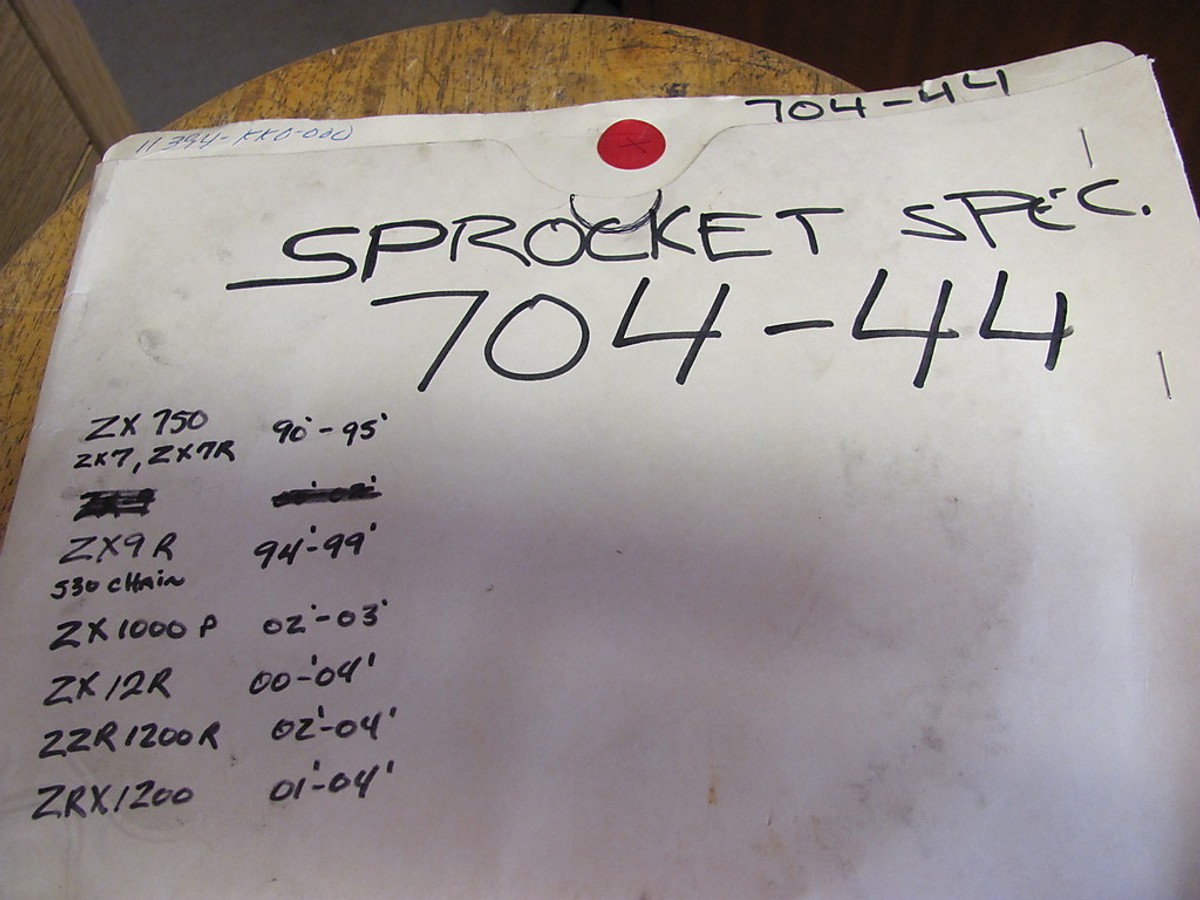 704-44
11394-KK0-000
SPROCKET SPEC.
704-44
ZX 750 90'-95'
ZX7, ZX7R
ZX9R 94'-99'
530 CHAIN
ZX1000P 02'-03'
ZX12R 00'-04'
ZZR1200R 02'-04'
ZRX1200 01'-04'